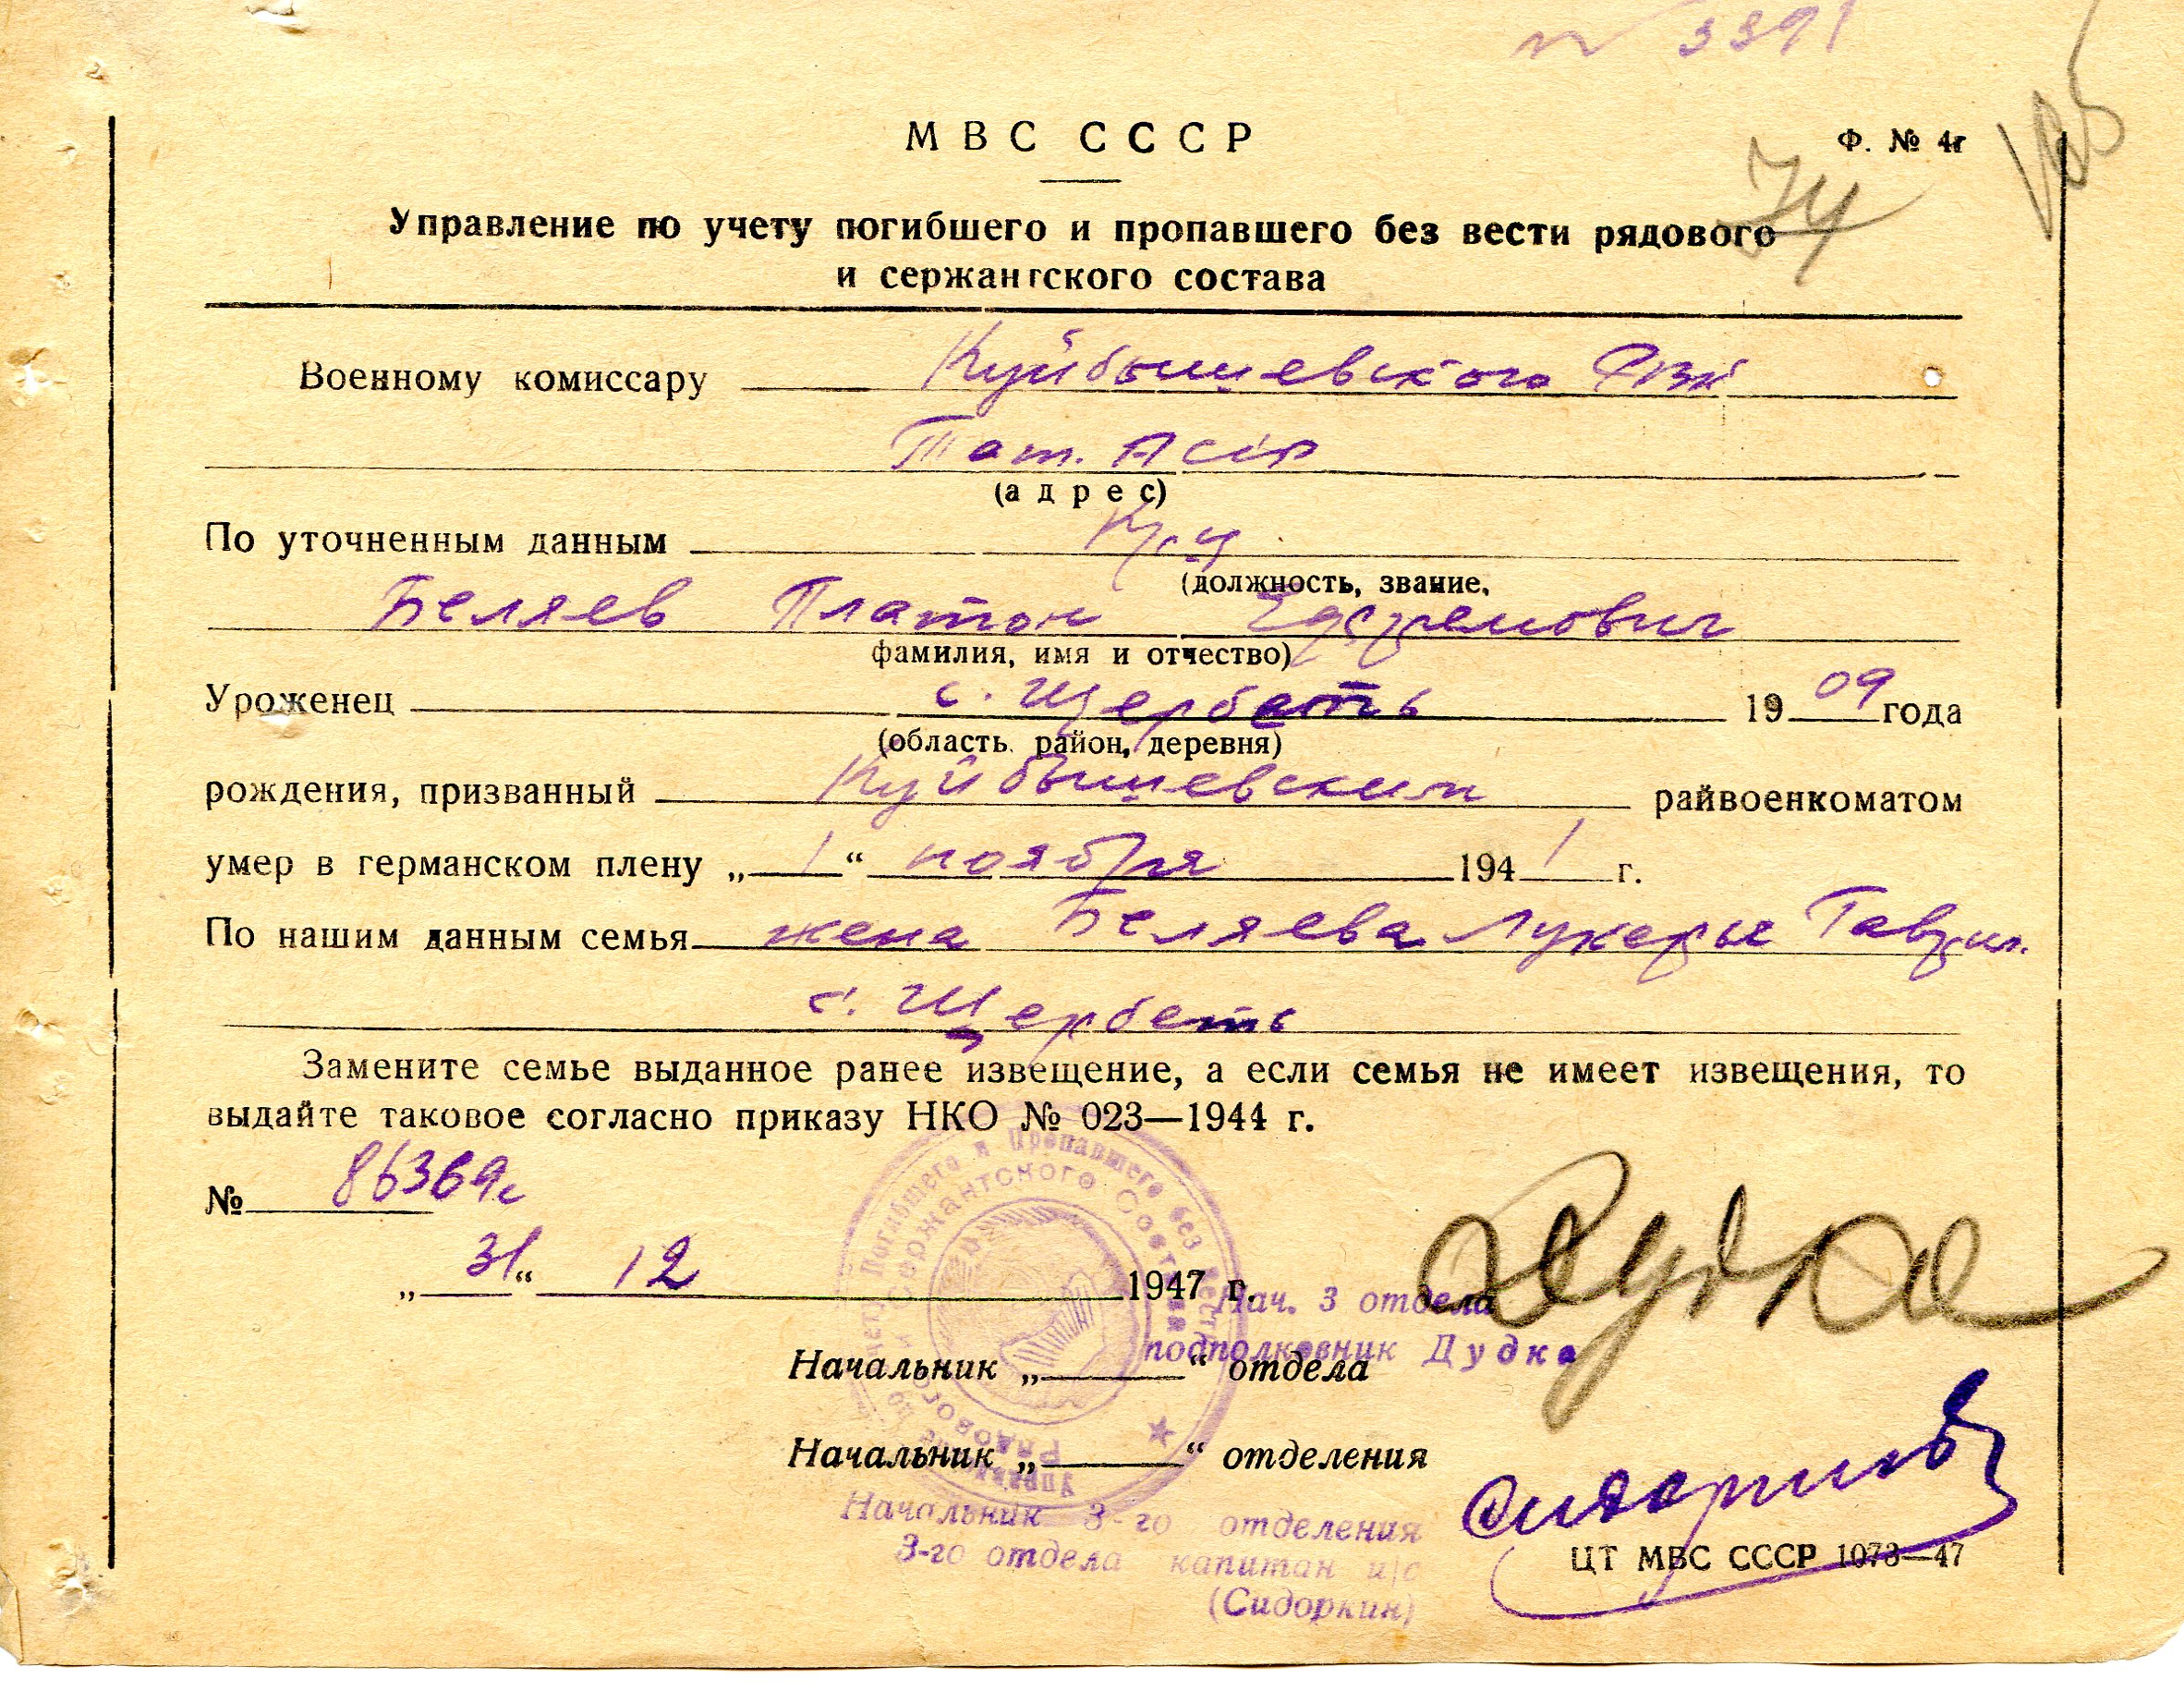 № 3391
МВС СССР
Ф. № 4г
Управление по учету погибшего и пропавшего без вести рядового
и сержантского состава
Военному комиссару Куйбышевского РВК
Тат. АССР
(адрес)
По уточненным данным кр-ц
(должность, звание,
Беляев Платон Ефремович
фамилия, имя и отчество)
Уроженец с. Щербеть 1909 года
(область, район, деревня)
рождения, призванный Куйбышевским райвоенкоматом
умер в германском плену „1“ ноября 1941 г.
По нашим данным семья жена Беляева Лукерья Гаврил.
с. Щербеть
Замените семье выданное ранее извещение, а если семья не имеет извещения, то
выдайте таковое согласно приказу НКО № 023—1944 г.
№ 86369с
„31“ 12 1947 г.
Нач. 3 отдела
подполковник Дудка
Начальник „ “ отдела
Начальник „ “ отделения
Начальник 3-го отделения
3-го отдела капитан и/с
(Сидоркин)
ЦТ МВС СССР 1073—47
Управление по учету Погибшего и Пропавшего без вести
Рядового и Сержантского Состава